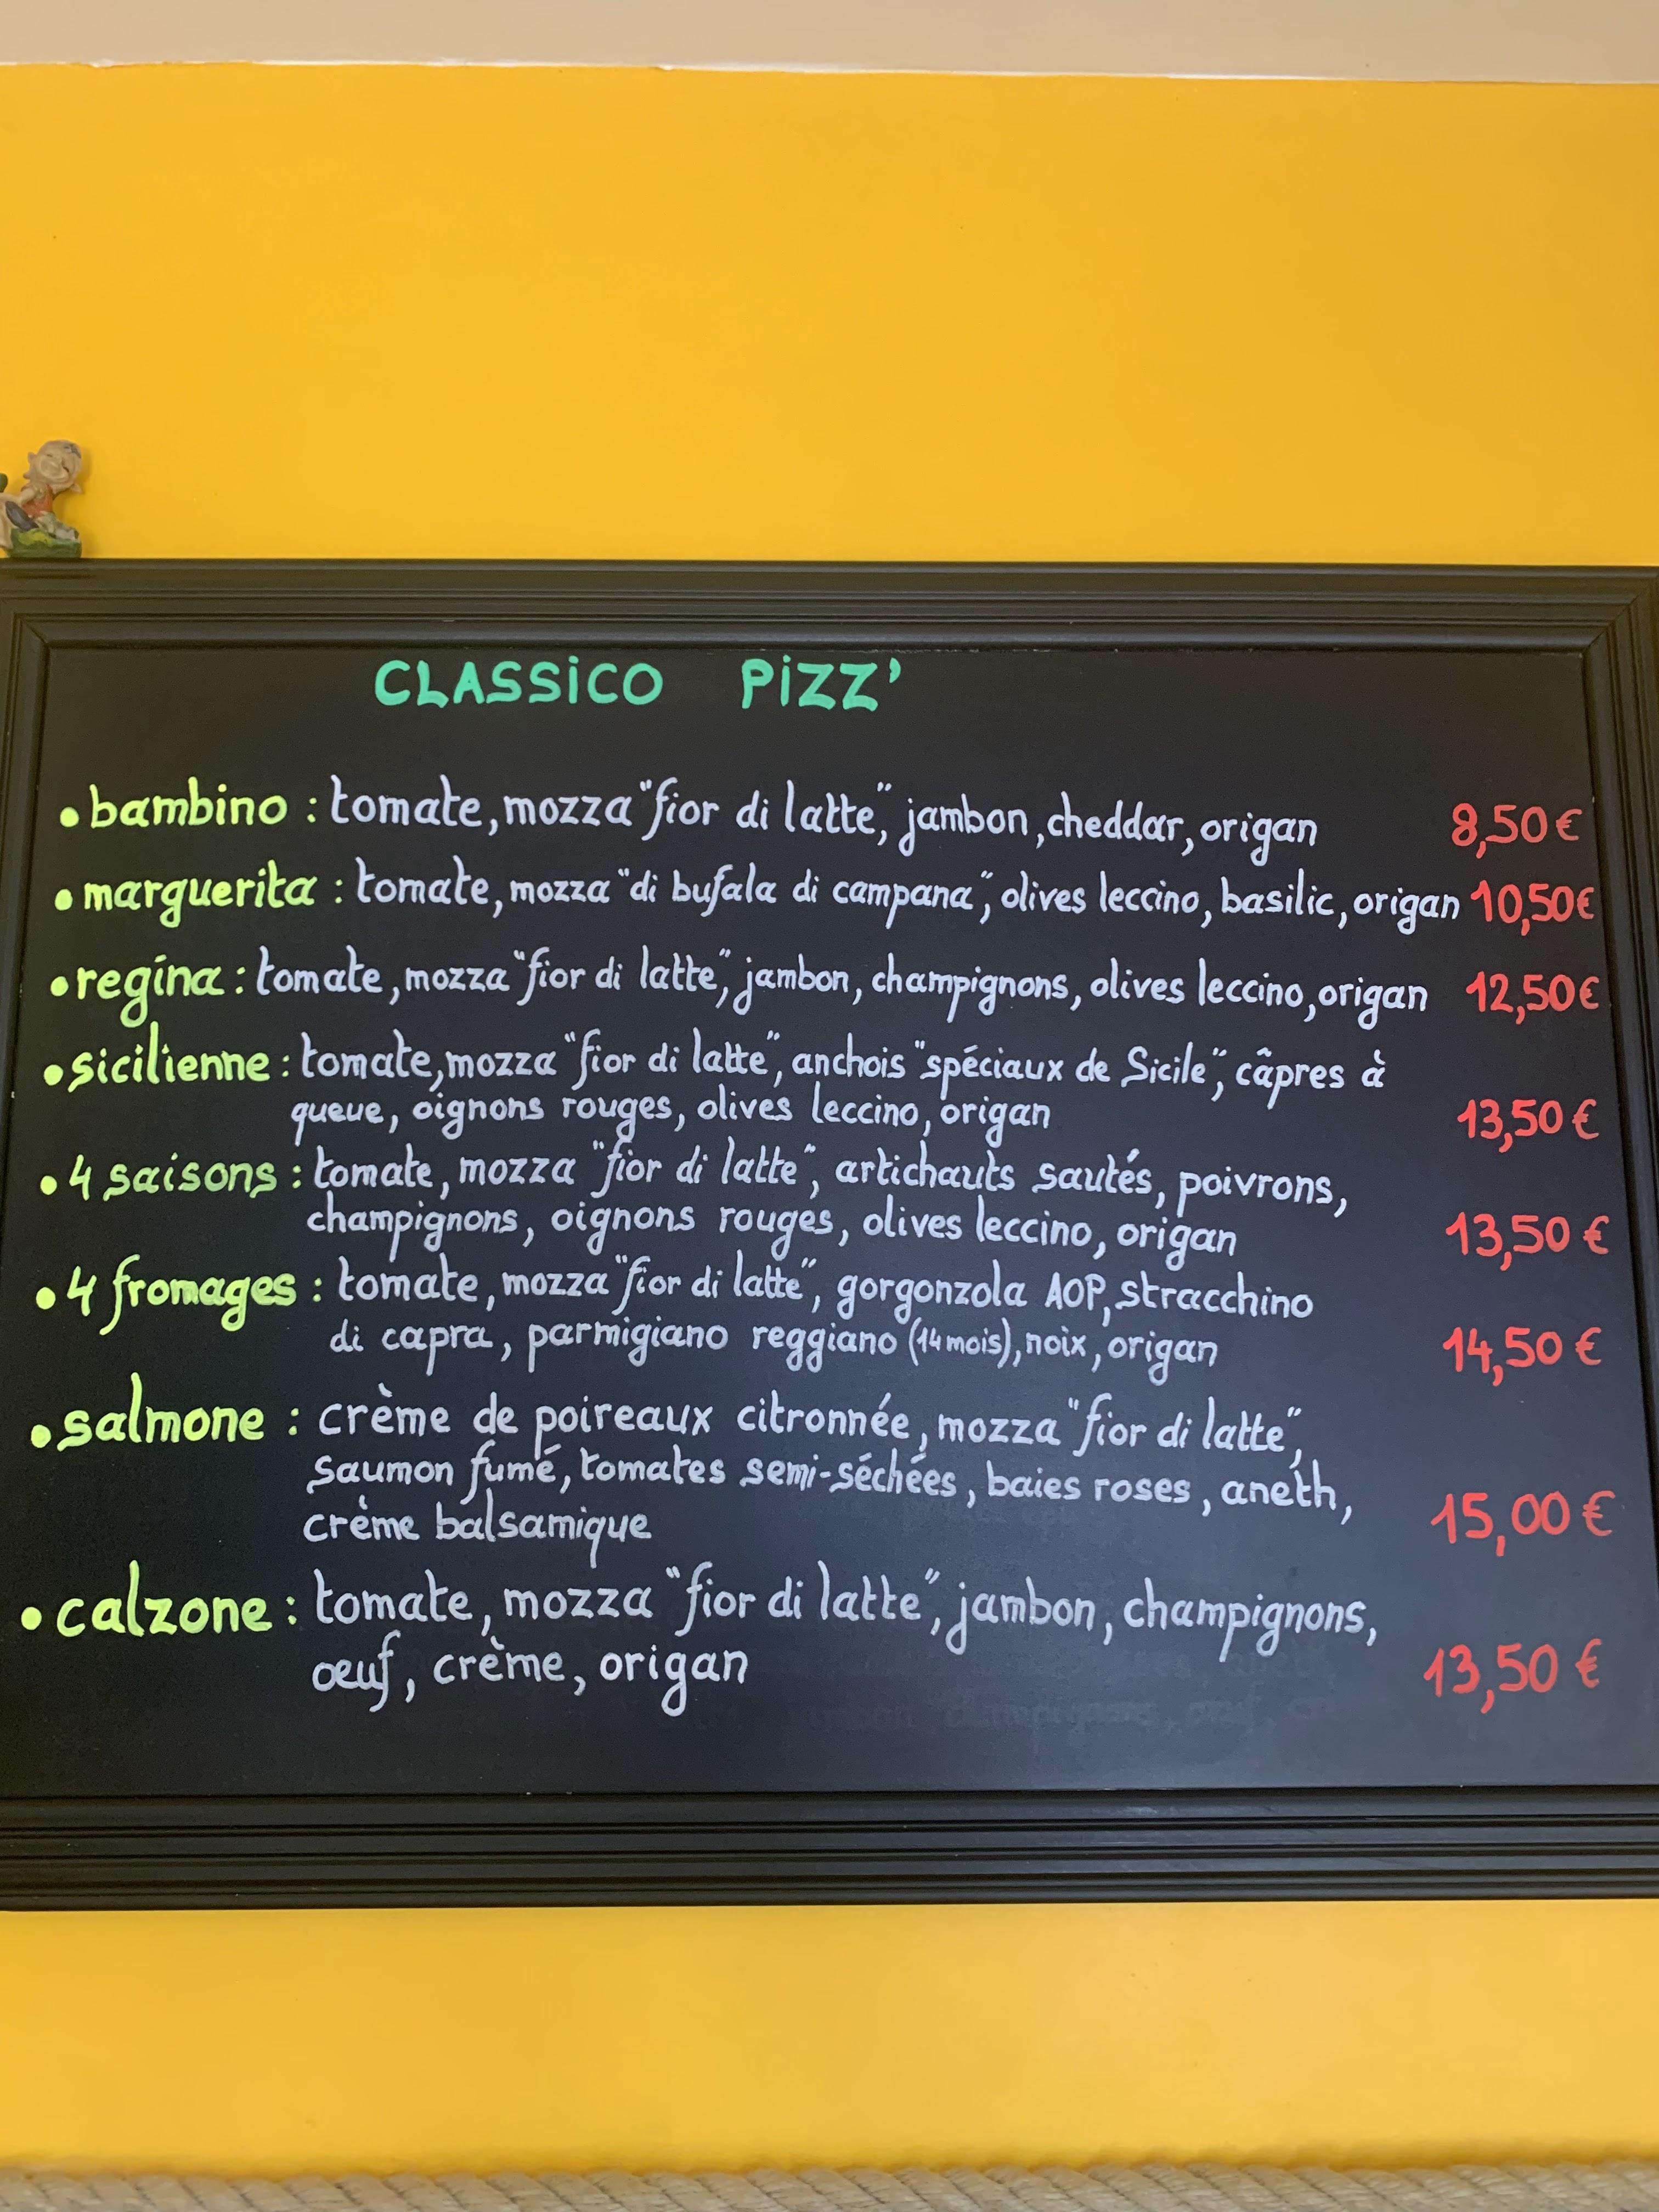 CLASSiCO PiZZ'
• bambino : tomate, mozza "fior di latte", jambon, cheddar, origan 8,50 €
• marguerita : tomate, mozza "di bufala di campana", olives leccino, basilic, origan 10,50€
• regina : tomate, mozza "fior di latte", jambon, champignons, olives leccino, origan 12,50€
• sicilienne : tomate, mozza "fior di latte", anchois "spéciaux de Sicile", câpres à
queue, oignons rouges, olives leccino, origan 13,50 €
• 4 saisons : tomate, mozza "fior di latte", artichauts sautés, poivrons,
champignons, oignons rouges, olives leccino, origan 13,50 €
• 4 fromages : tomate, mozza "fior di latte", gorgonzola AOP, stracchino
di capra, parmigiano reggiano (14 mois), noix, origan 14,50 €
• salmone : crème de poireaux citronnée, mozza "fior di latte",
saumon fumé, tomates semi-séchées, baies roses, aneth,
crème balsamique 15,00 €
• calzone : tomate, mozza "fior di latte", jambon, champignons,
œuf, crème, origan 13,50 €